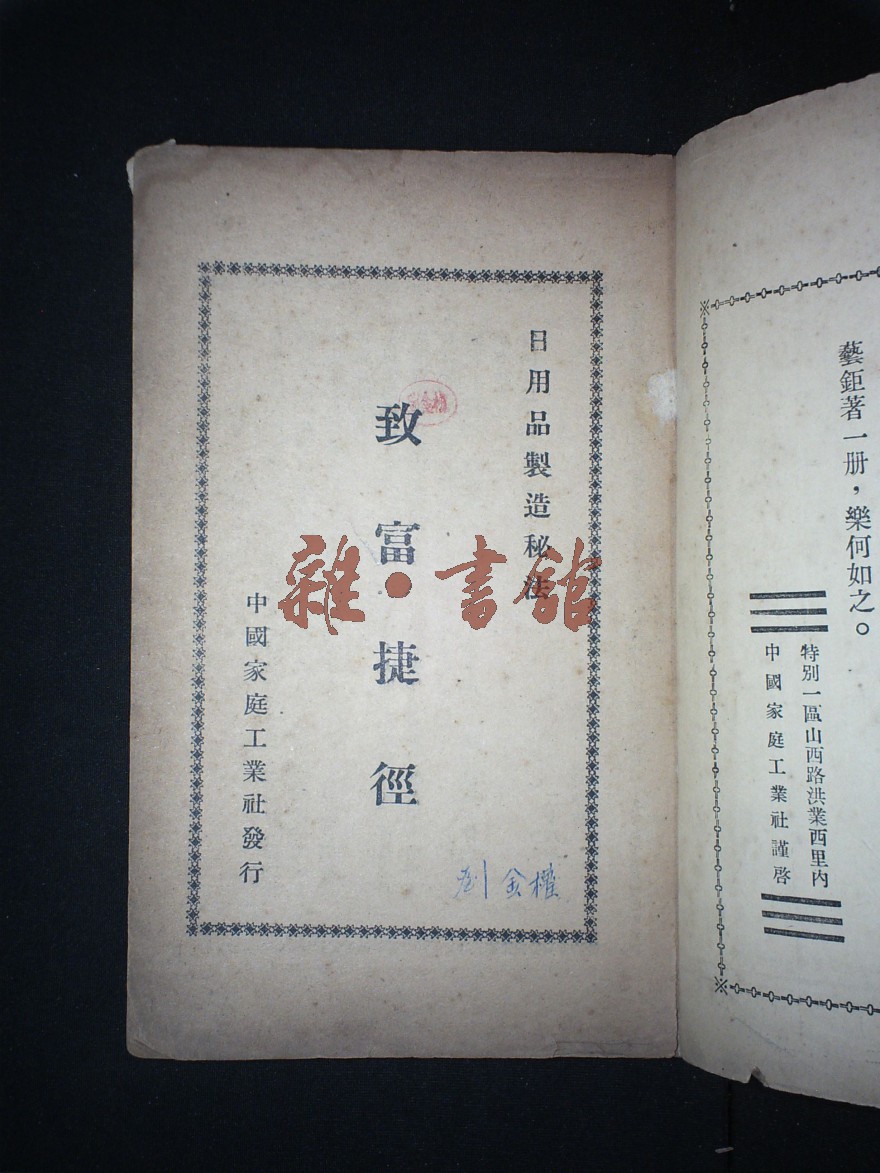 日用品製造秘法
致富捷徑
中國家庭工業社發行
劉金權
雜·書館
藝鉅著一册，樂何如之。
特別一區山西路洪業西里內
中國家庭工業社謹啓